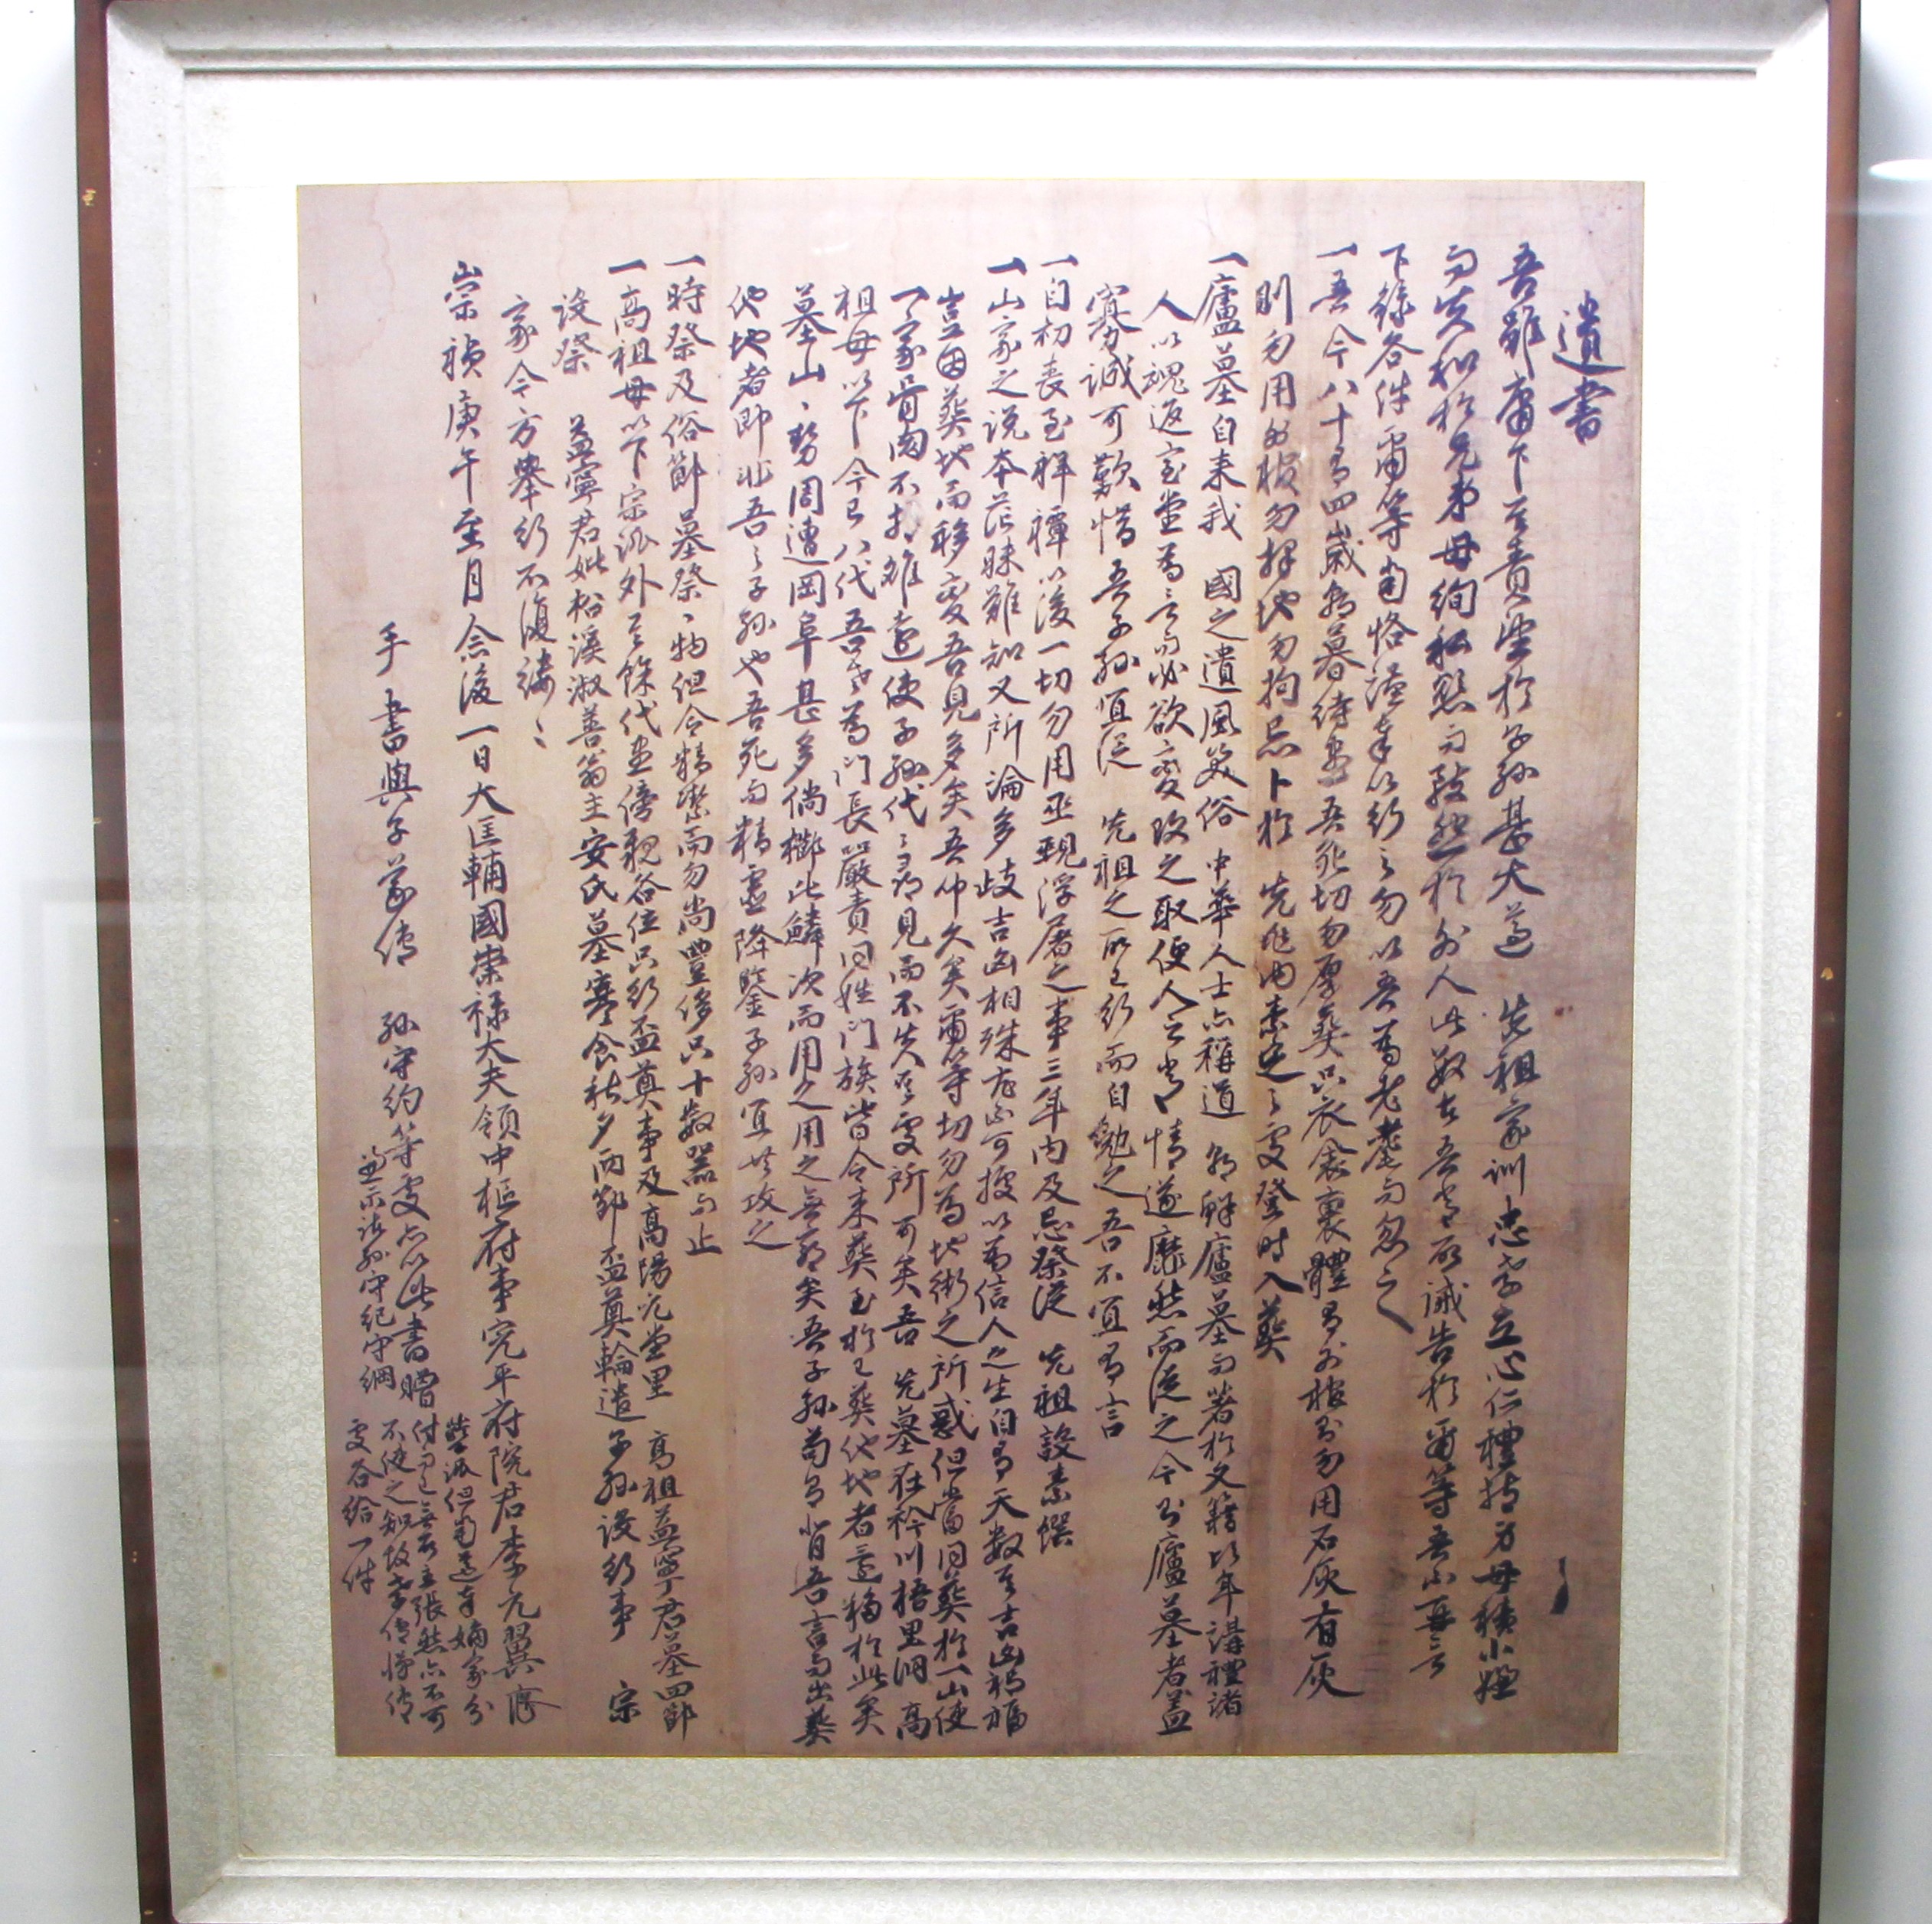 遺書
吾雖庸下其責望於子孫甚大遵 先祖家訓忠孝立心仁禮持身毋積小嫌
而失和於兄弟毋徇私怨而致怨於外人此數者吾常所誡告於爾等吾不再言
下錄各件爾等當恪謹奉以行之勿以吾爲老耄而忽之
一吾今八十有四歲朝暮待盡吾死切勿厚葬只衣衾裹體有外棺則勿用石灰有灰
則勿用外棺勿擇地勿拘忌卜於 先兆內素定之處登時入葬
一廬墓自來我 國之遺風美俗 中華人士亦稱道 朝鮮廬墓而著於文籍以年講禮諸
人以魂返室堂爲言而必欲變改之取便人之常情遂靡然而從之今則廬墓者蓋
寡誠可歎惜吾子孫宜從 先祖之所已行而自勉之吾不宜有言
一自初喪至祥禫以後一切勿用巫覡浮屠之事三年內及忌祭從 先祖設素饌
一山家之說本茫昧難知又所論多歧吉凶相殊尤不可據以爲信人之生自有天數其吉凶禍福
豈因葬地而移變吾見多矣吾仰久矣爾等切勿爲地術之所惑但當同葬於一山使
一家骨肉不相離遠使子孫代之尋見而不失其處所可矣吾 先墓在衿川梧里洞 高
祖母以下今已八代吾世爲門長嚴責同姓門族皆令來葬至於已葬他地者還移於此矣
墓山山勢周遭岡阜甚多倘櫛比鱗次而用之用之無窮矣吾子孫苟有背吾言而出葬
他地者卽非吾之子孫也吾死而精靈降鑒子孫宜無改之
一時祭及俗節墓祭祭物但令精潔而勿尚豐侈只十數器而止
一高祖母以下宗派外其餘代盡傍親各位只行盃奠事及高陽元堂里 高祖益寧君墓四節
設祭 益寧君妣松溪淑善翁主安氏墓寒食秋夕兩節盃奠輪遣子孫設行事 宗
家今方擧行不復縷縷
崇禎庚午至月念後一日大匡輔國崇祿大夫領中樞府事完平府院君李元翼
手書與子義傳 孫守約等處亦以此書贈
並示諸孫守紀守綱
付而已
不使之知故孝傳悌傳
處各給一件